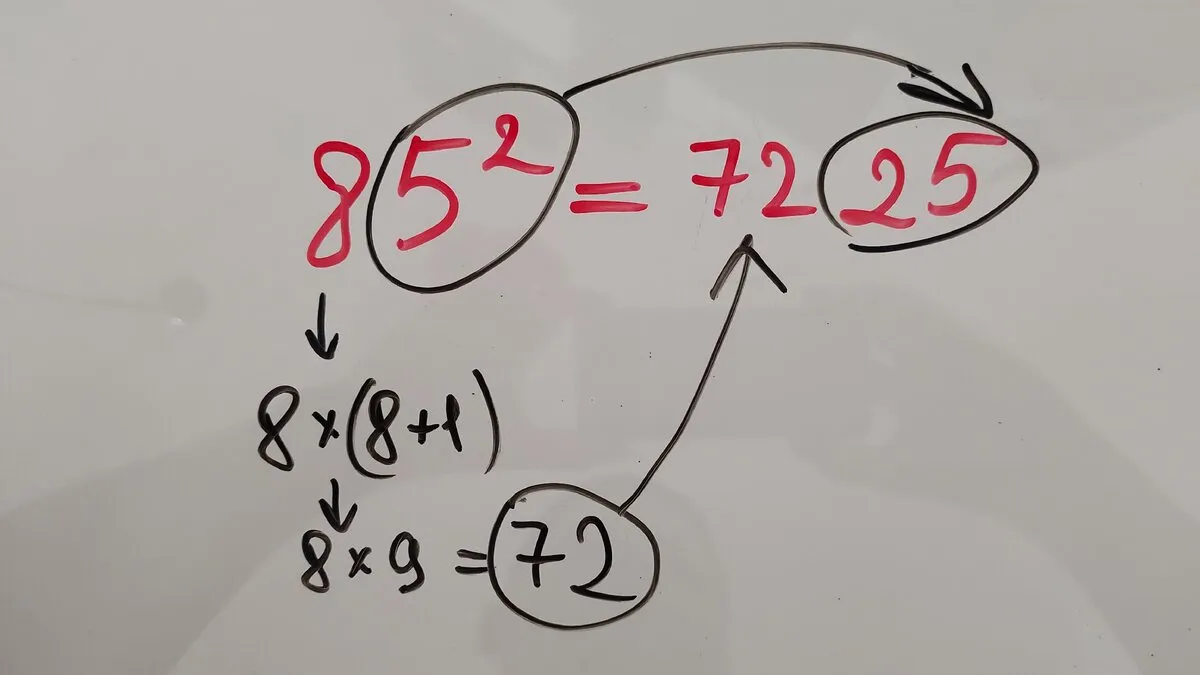 85² = 7225
8×(8+1)
8×9 = 72